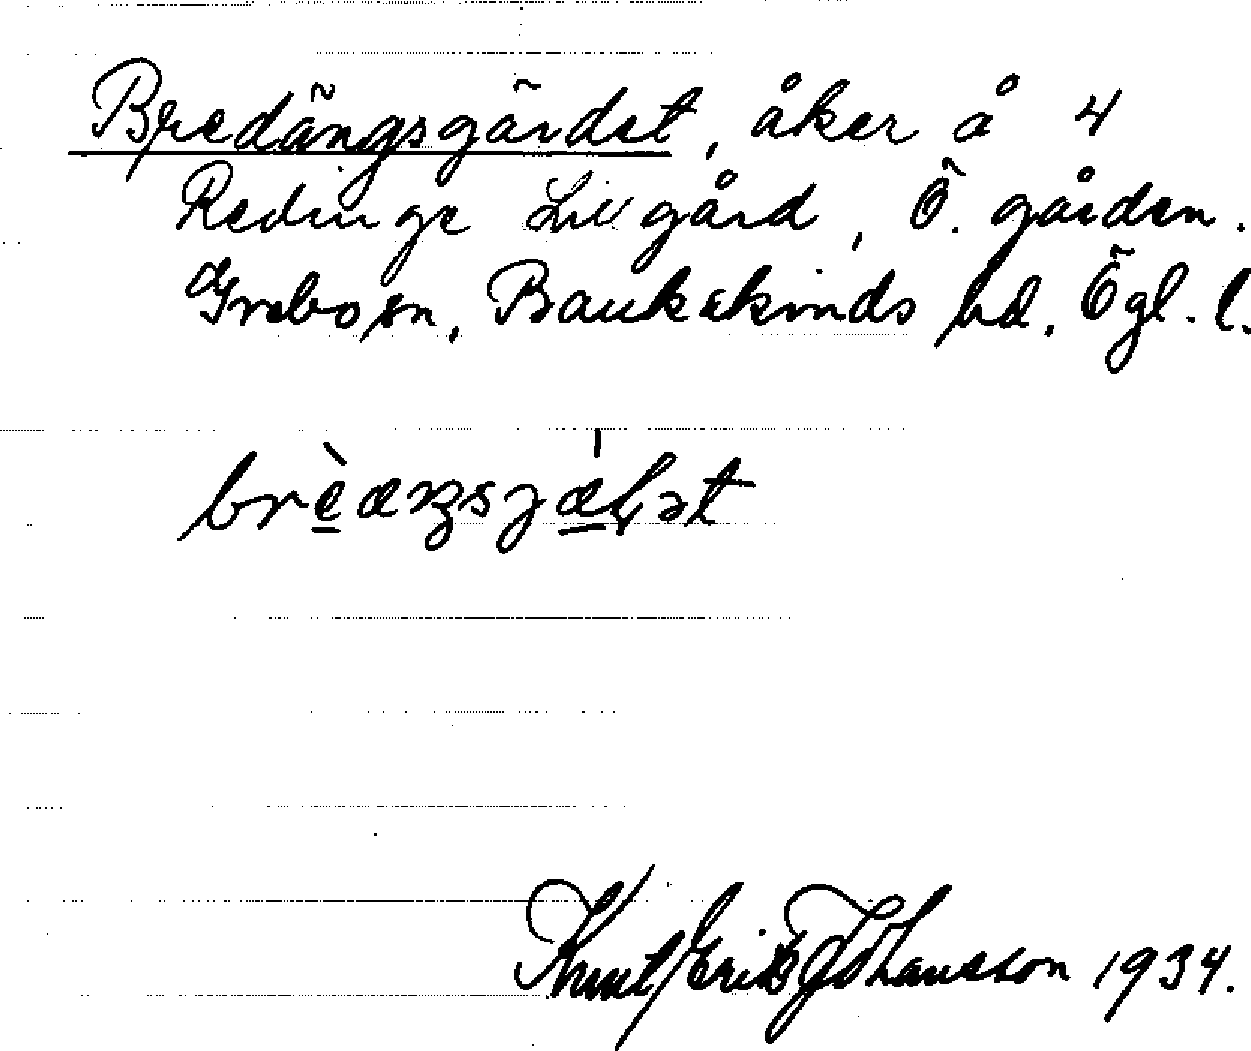 Bredängsgärdet, åker å 4
Redinge Lillgård, Ö. gården.
Grebo sn, Bankekinds hd. Ögl. l.
Knut Erik Johansson 1934.